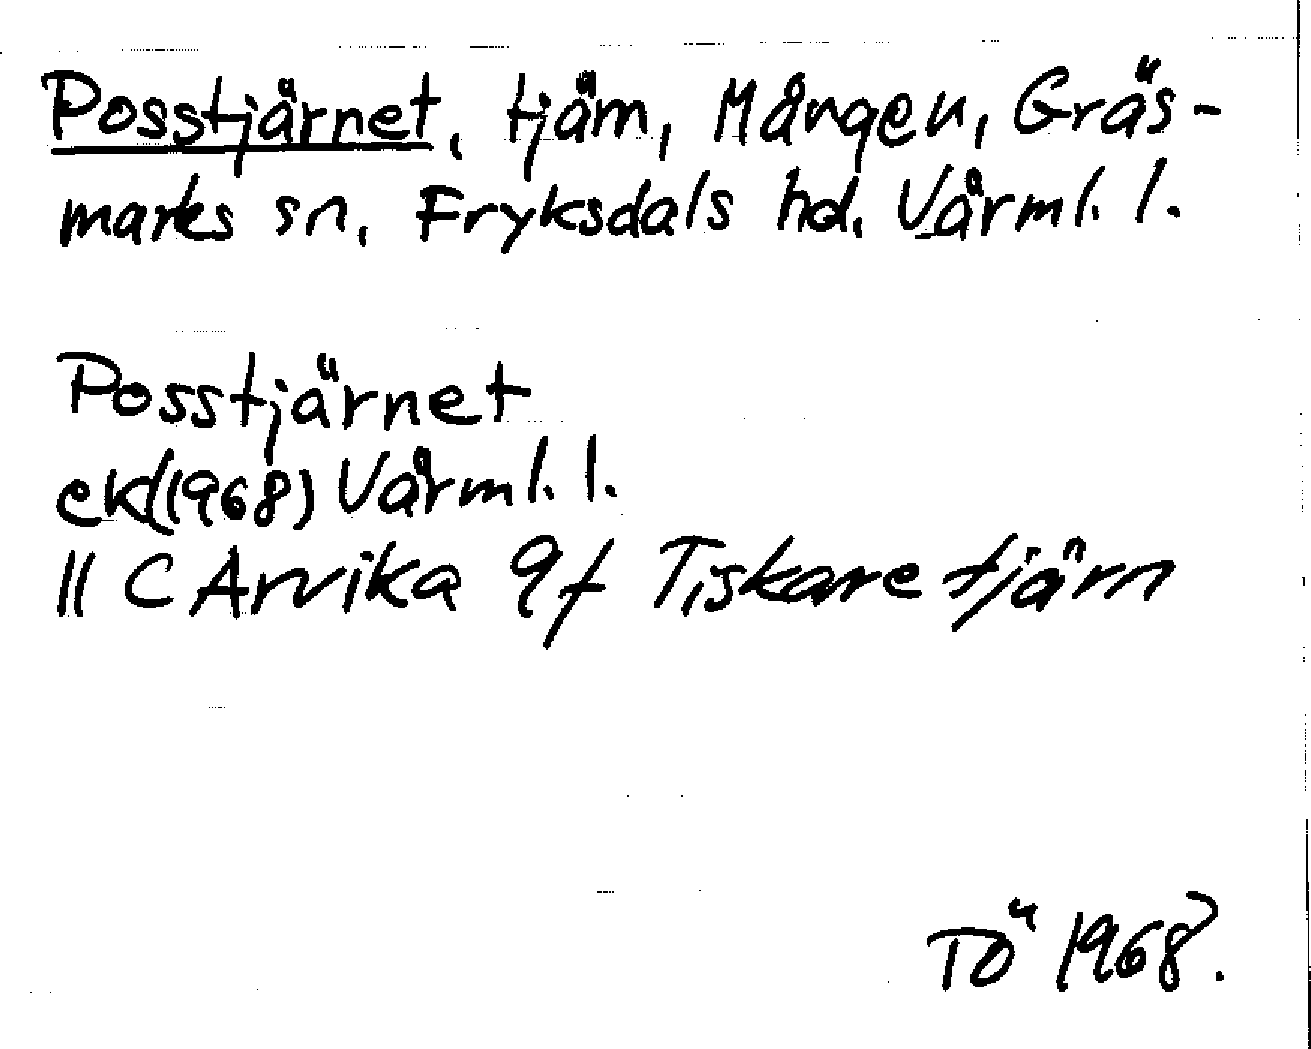 Posstjärnet, tjärn, Mången, Gräs-
marks sn, Fryksdals hd. Värml. l.
Posstjärnet
ek (1968) Värml. l.
11 C Arvika 9f Tiskaretjärn
TÖ 1968.